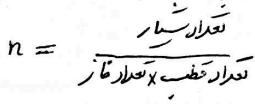 تعداد شیار
n =
تعداد قطب × تعداد فاز